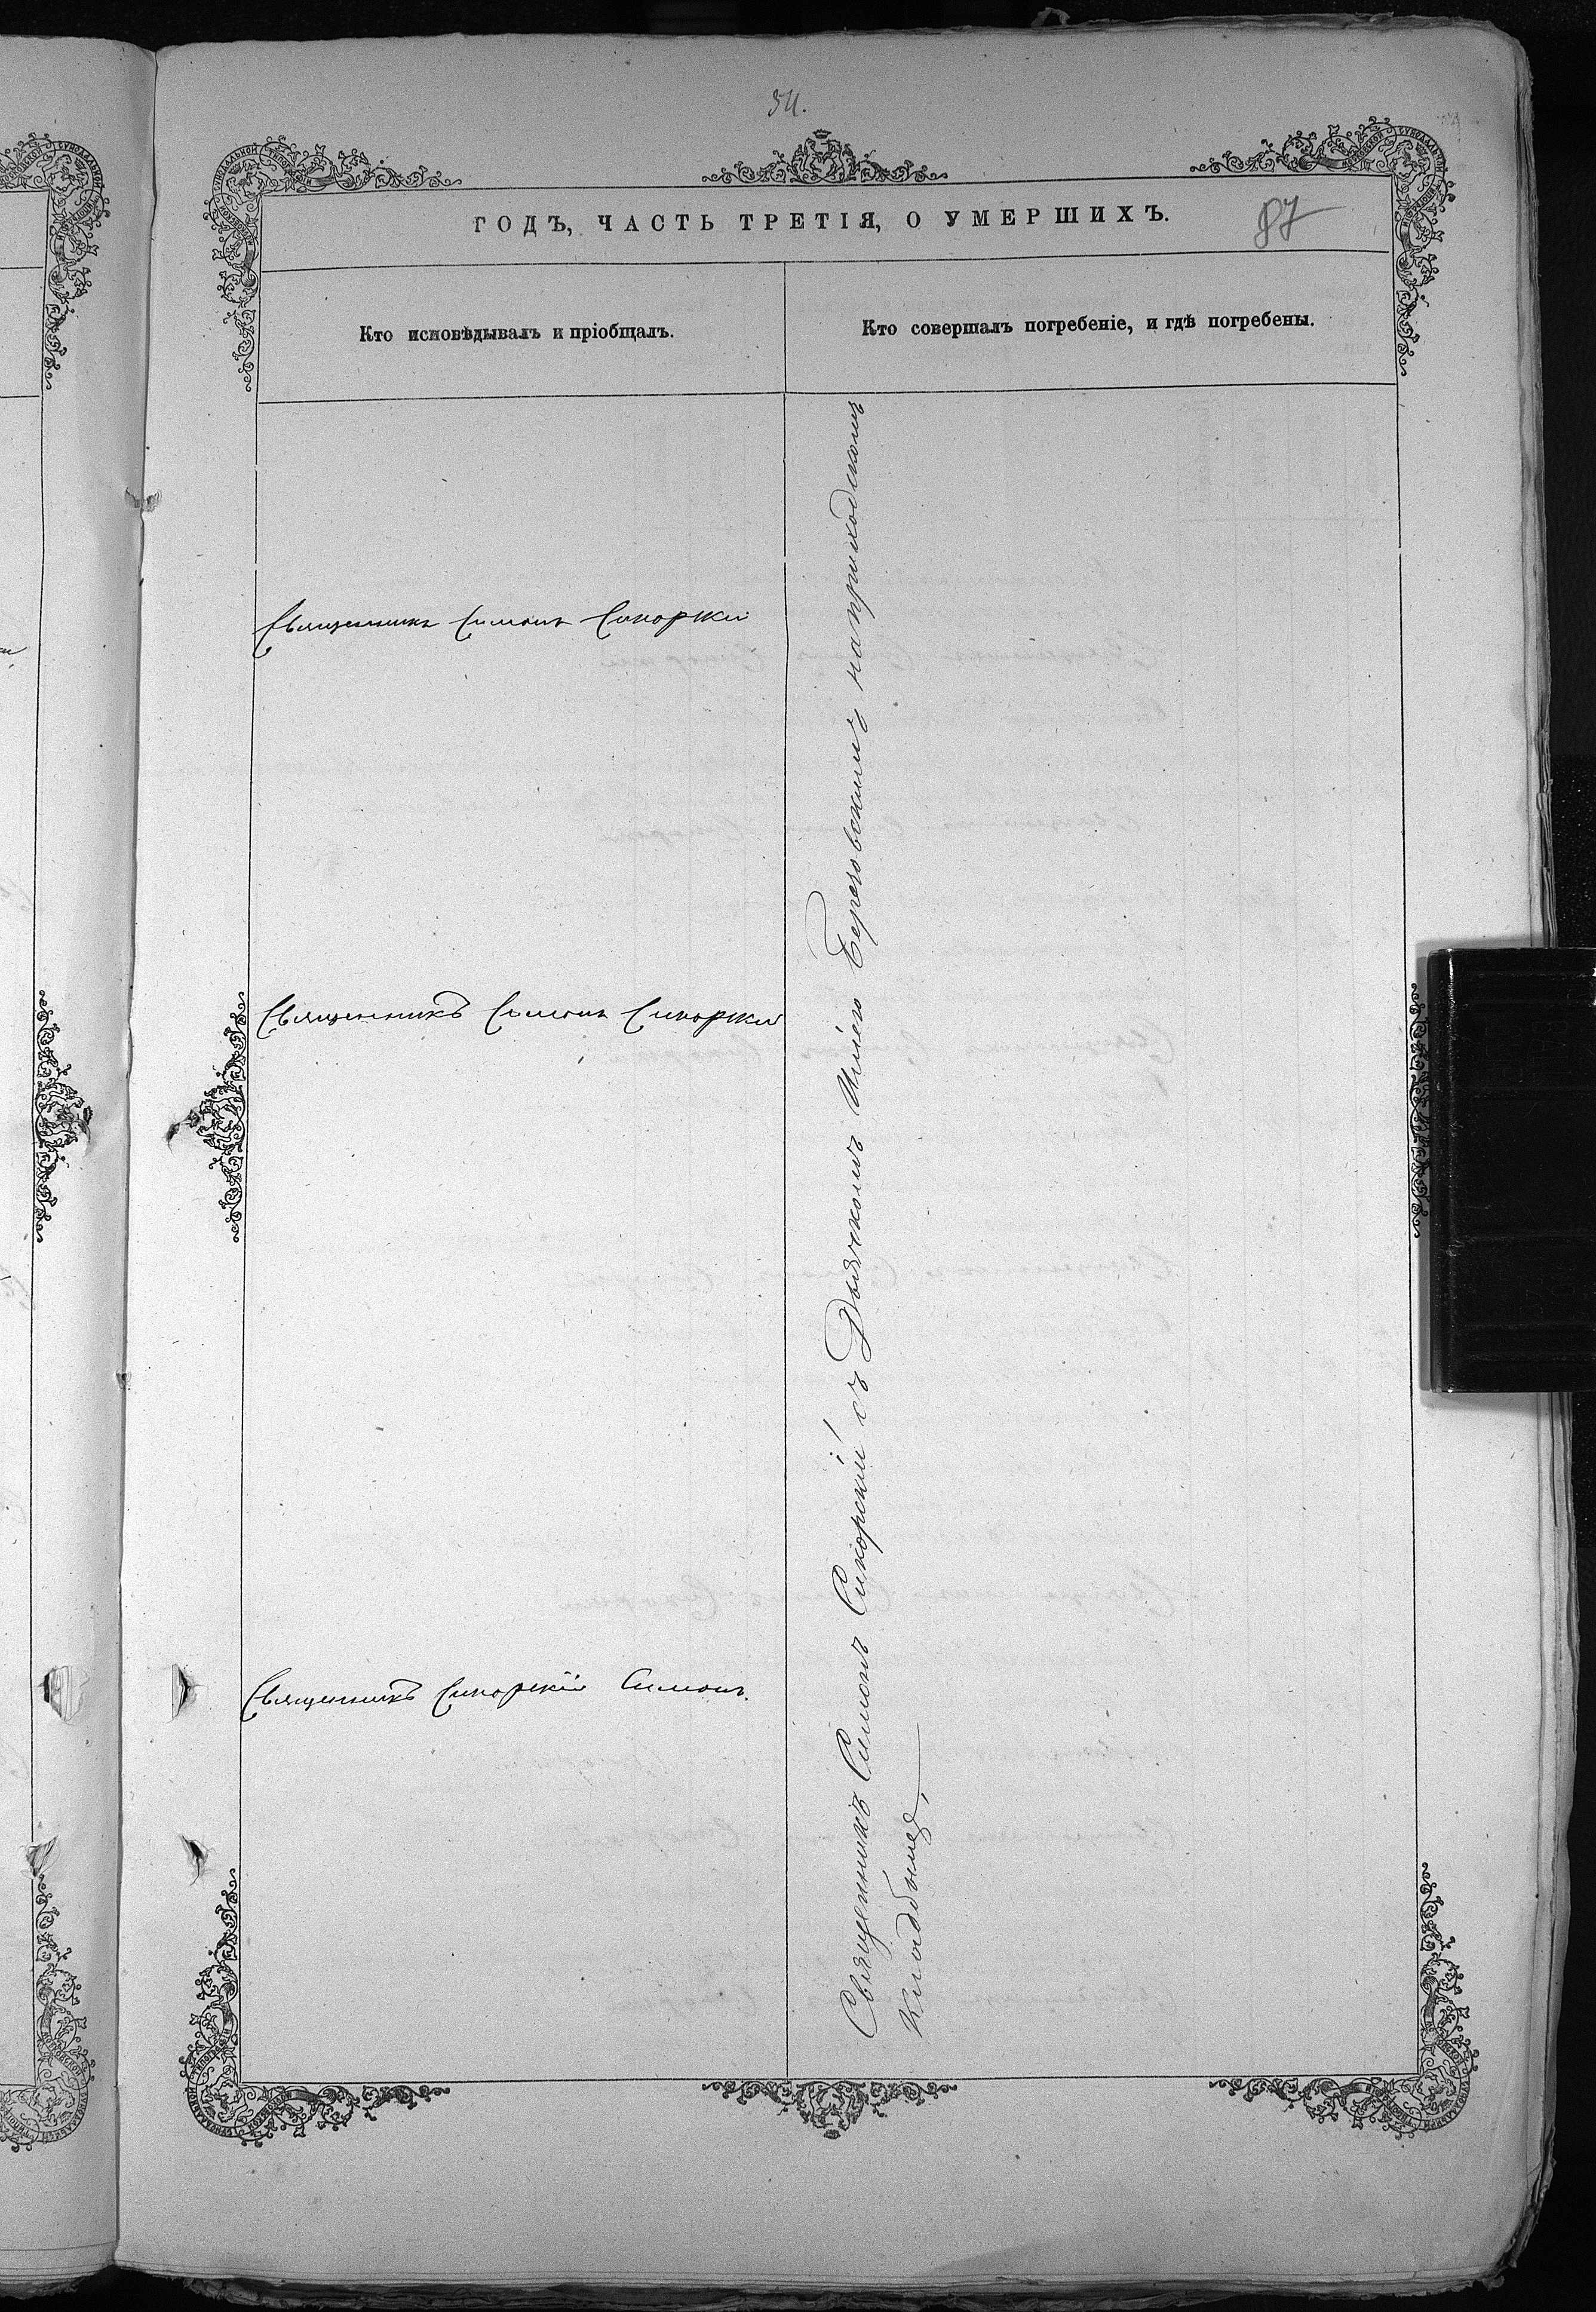 54.
ГОДЪ, ЧАСТЬ ТРЕТІЯ, О УМЕРШИХЪ.
87
Кто исповѣдывалъ и пріобщалъ.
Кто совершалъ погребеніе, и гдѣ погребены.
Священникъ Симонъ Сикорскій
Священникъ Симонъ Сикорскій
Священникъ Сикорскій Симонъ.
Священникъ Симонъ Сикорскій съ Дьячкомъ Иліею Березовскимъ на приходскомъ
Кладбищѣ,